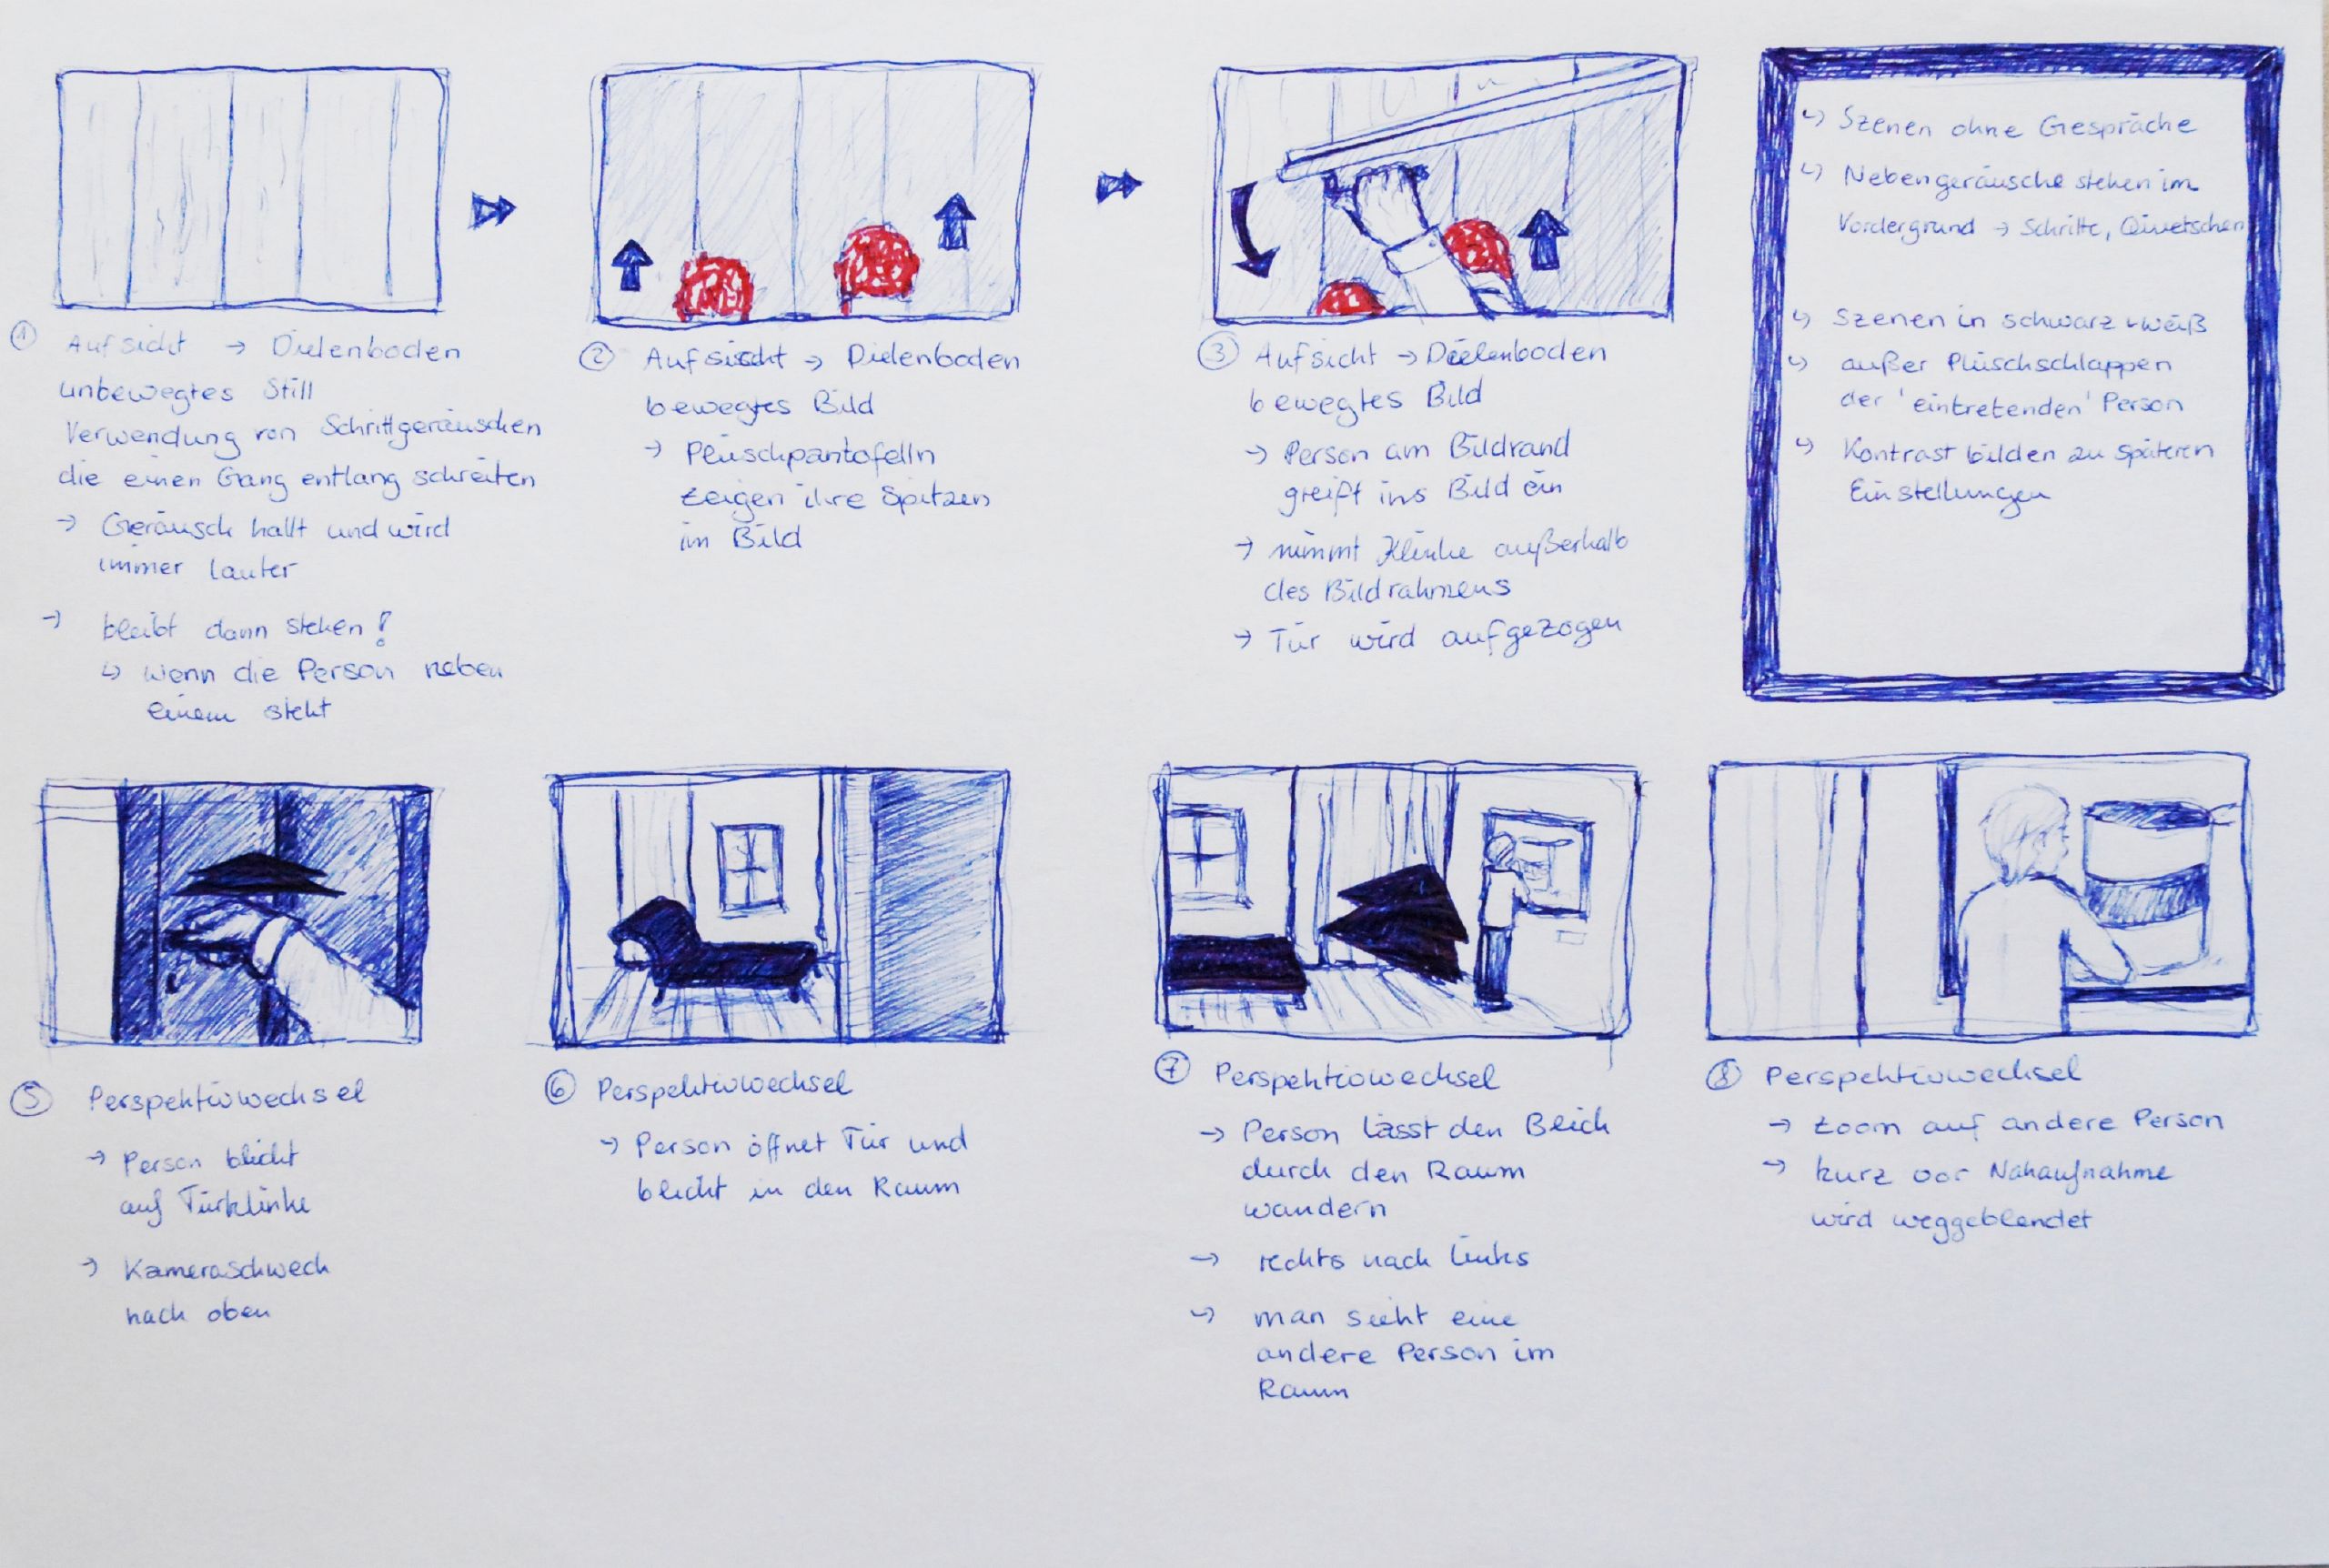 ① Aufsicht → Dielenboden
unbewegtes Still
Verwendung von Schrittgeräuschen
die einen Gang entlang schreiten
→ Geräusch hallt und wird
immer lauter
→ bleibt dann stehen!
↳ wenn die Person neben
einem steht
② Aufsicht → Dielenboden
bewegtes Bild
→ Plüschpantofelln
zeigen ihre Spitzen
im Bild
③ Aufsicht → Dielenboden
bewegtes Bild
→ Person am Bildrand
greift ins Bild ein
→ nimmt Klinke außerhalb
des Bildrahmens
→ Tür wird aufgezogen
↳ Szenen ohne Gespräche
↳ Nebengeräusche stehen im
Vordergrund → Schritte, Quietschen
↳ Szenen in schwarz weiß
↳ außer Plüschschlappen
der 'eintretenden' Person
↳ Kontrast bilden zu späteren
Einstellungen
⑤ Perspektivwechsel
→ Person blickt
auf Türklinke
→ Kameraschwech
nach oben
⑥ Perspektivwechsel
→ Person öffnet Tür und
blickt in den Raum
⑦ Perspektivwechsel
→ Person lässt den Blick
durch den Raum
wandern
→ rechts nach links
↳ man sieht eine
andere Person im
Raum
⑧ Perspektivwechsel
→ zoom auf andere Person
→ kurz vor Nahaufnahme
wird weggeblendet